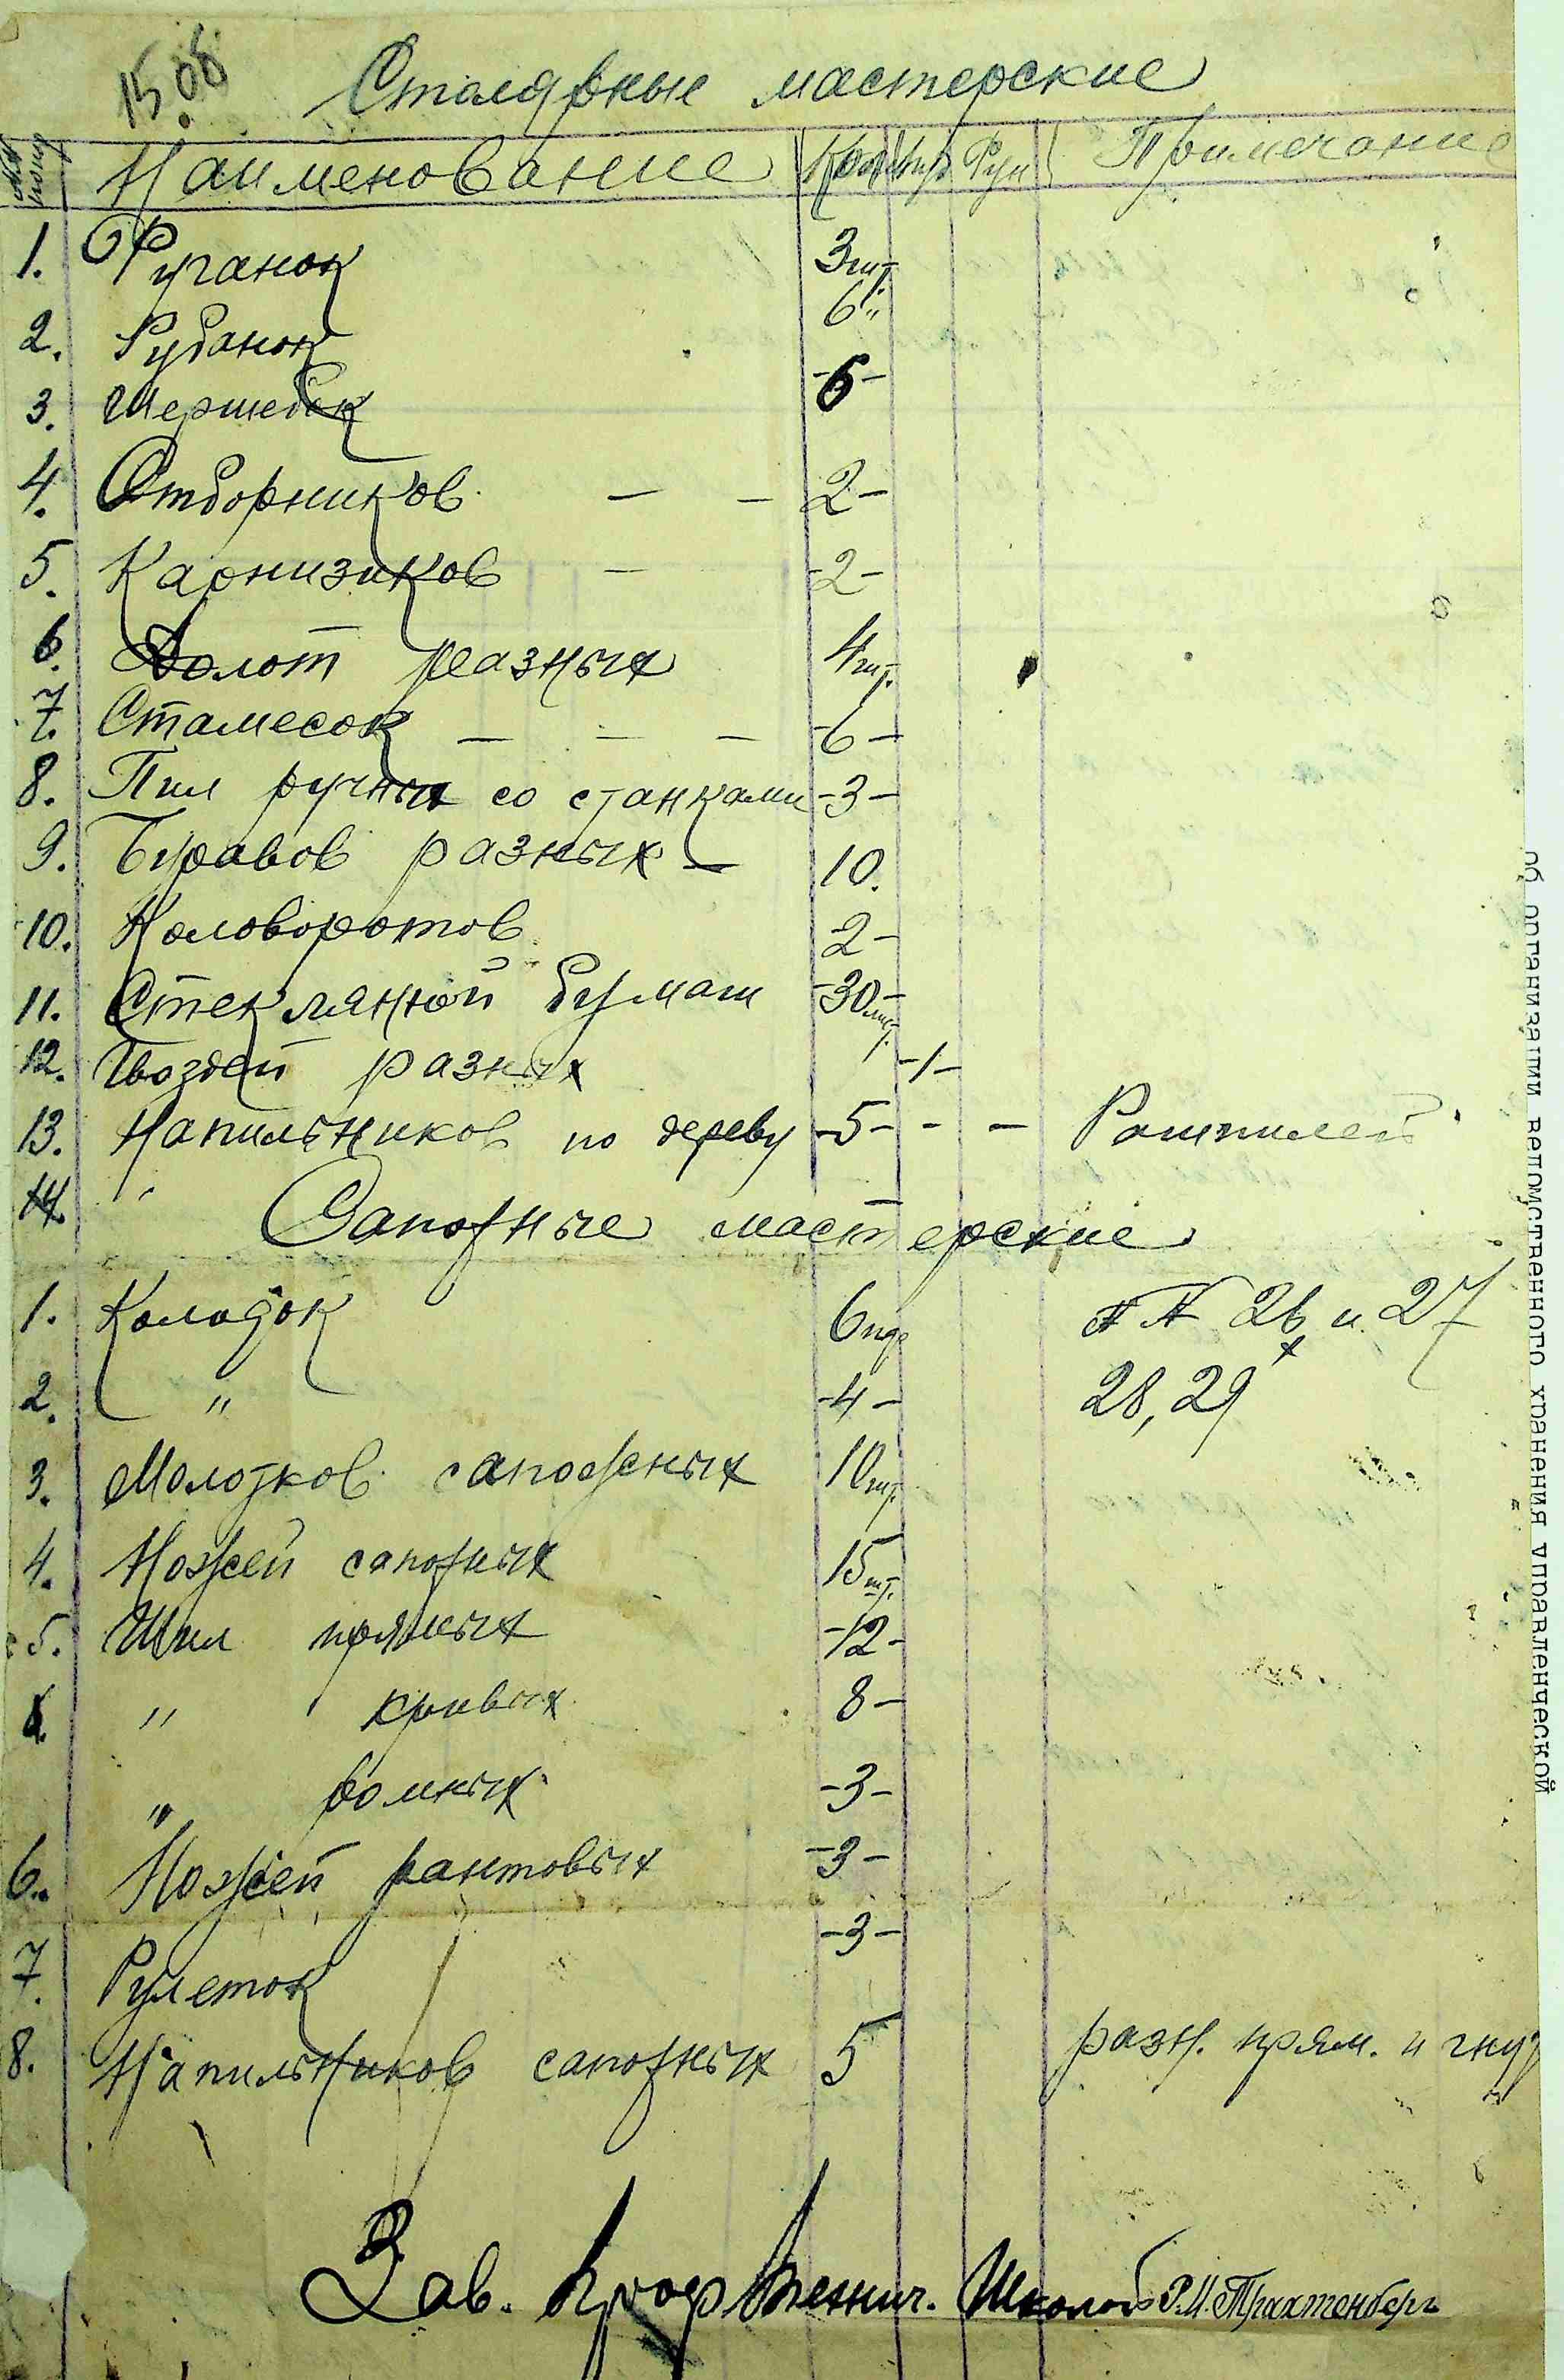 15 об.
Столярные мастерские
Наименование Кол. Пуд Фун Примечание
1. Фуганок 3 шт.
2. Рубанок 6 "
3. Шершебок -6-
4. Отборников — — 2-
5. Карнизиков — -2-
6. Долот разных 4 шт.
7. Стамесок — — — -6-
8. Пил ручных со станками -3-
9. Буравов разных — 10.
10. Коловоротов 2-
11. Стеклянной бумаги -30- лис.
12. Гвоздей разных -1-
13. Напильников по дереву -5- - — Рашпилей
14. "
Сапожные мастерские
1. Колодок 6 пар 26 и 27
2. " -4- 28, 29
3. Молотков сапожных 10 шт.
4. Ножей сапожных 15 шт.
5. Шил прямых -12-
6. " кривых 8-
" -3-
6. Ножей рантовых -3-
7. Рулеток -3-
8. Напильников сапожных 5 разн. прям. и гнут
Зав. Проф Технич. Школой Р.М. Трахтенберг
об организации ведомственного хранения управленческой